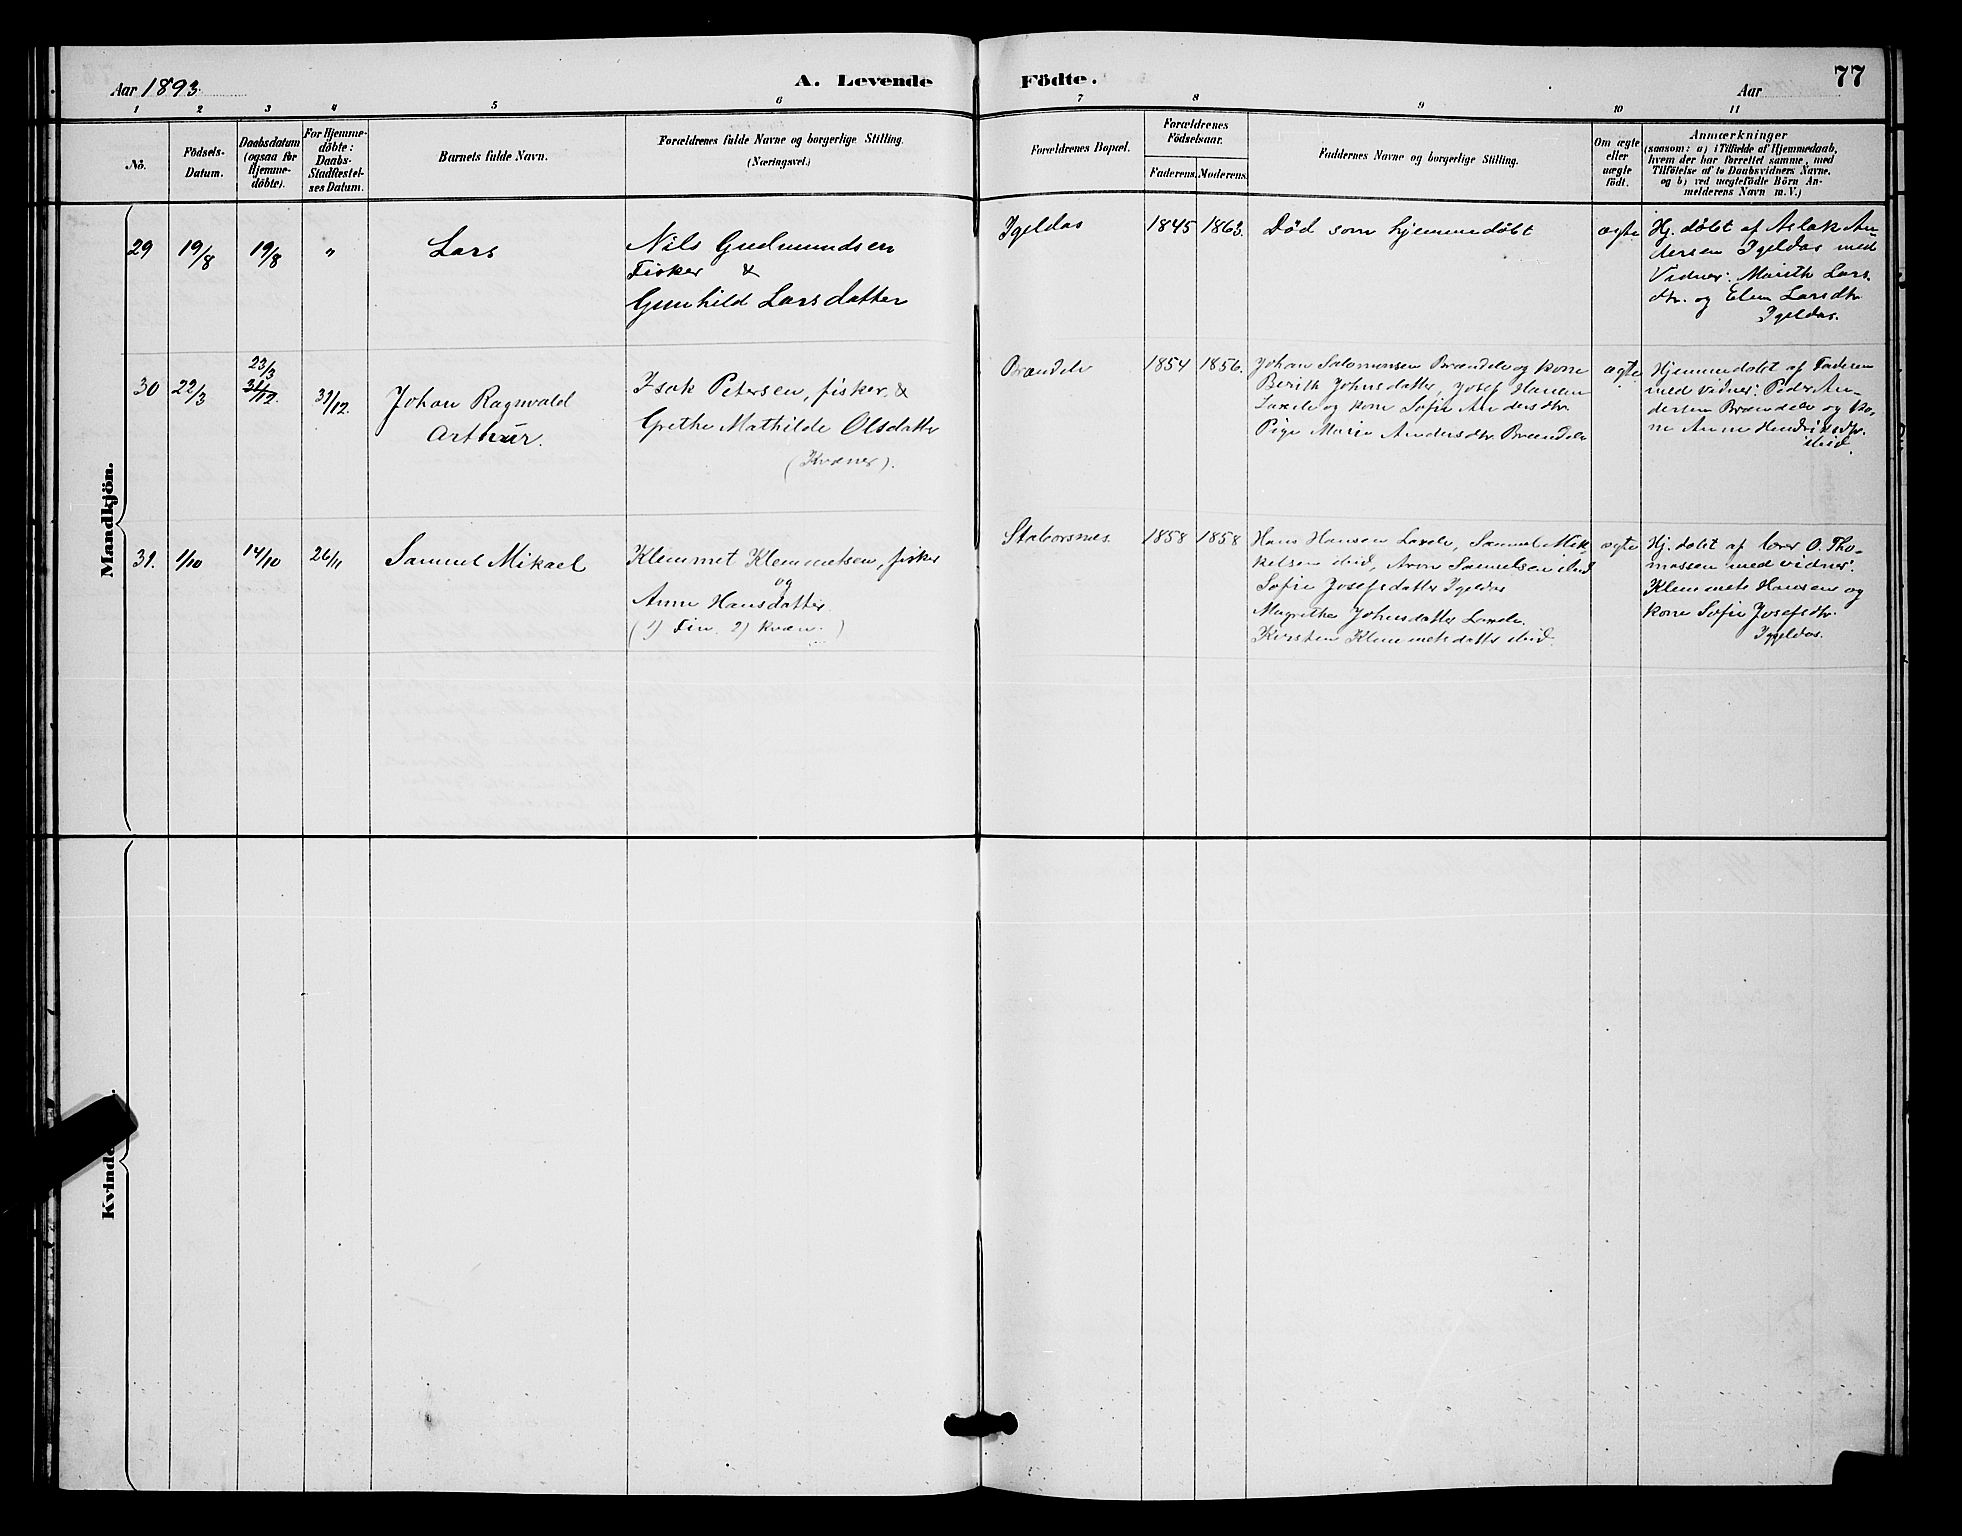 Aar 1893.
A. Levende Födte.
Aar
77
1 2 3 4 5 6 7 8 9 10 11
Nô.
Födsels-
Datum.
Daabsdatum
(ogsaa for
Hjemme-
döbte).
For Hjemme-
döbte:
Daabs-
Stadfæstel-
ses Datum.
Barnets fulde Navn.
Forældrenes fulde Navne og borgerlige Stilling.
(Næringsvei.)
Forældrenes Bopæl.
Forældrenes
Födselsaar.
Faderens. Moderens.
Faddernes Navne og borgerlige Stilling.
Om ægte
eller
uægte
födt.
Anmærkninger
(saasom: a) i Tilfælde af Hjemmedaab,
hvem der har forrettet samme, med
Tilföielse af to Daabsvidners Navne,
og b) ved uægtefödte Börn An-
melderens Navn m.V.)
Mandkjön.
29 19/8 19/8 " Lars
Nils Gudmundsen
Fisker &
Gunhild Larsdatter
Igeldas 1845 1863. Död som hjemmedöbt ægte
Hj. döbt af Aslak An-
dersen Igeldas med
Vidner: Marith Lars
dtr. og Elen Larsdtr
Igeldas.
30 22/3
23/3
31/12.
31/12.
Johan Ragnvald
Arthur.
Isak Petersen, fisker. &
Grethe Mathilde Olsdatter
(Kvæner).
Brændelv 1854 1856.
Johan Salomonsen Brændelv og kone
Berith Johnsdatter, Josef Hansen
Laxelv og kone Sofie Andersdtr.
Pige Marie Andersdtr. Brændelv
ægte
Hjemmedøbt af Faderen
med vidner: Peder An-
dersen Brændelv og ko-
ne Anne Hendriksdtr.
ibid.
31. 1/10 14/10 26/11 Samuel Mikael
Klemmet Klemmetsen, fisker
og
Anne Hansdatter.
(1) Fin. 2) kvæn.)
Staborsnes 1858 1858
Hans Hansen Laxelv, Samuel Mik-
kelsen ibid, Aron Samuelsen ibid
Sofie Josefsdatter Igeldas
Magrethe Johnsdatter Laxelv.
Kirsten Klemmetsdatter ibid.
ægte
Hj. døbt af lærer O. Tho-
massen med vidner:
Klemmet Hansen og
kone Sofie Josefsdtr.
Iggeldas.